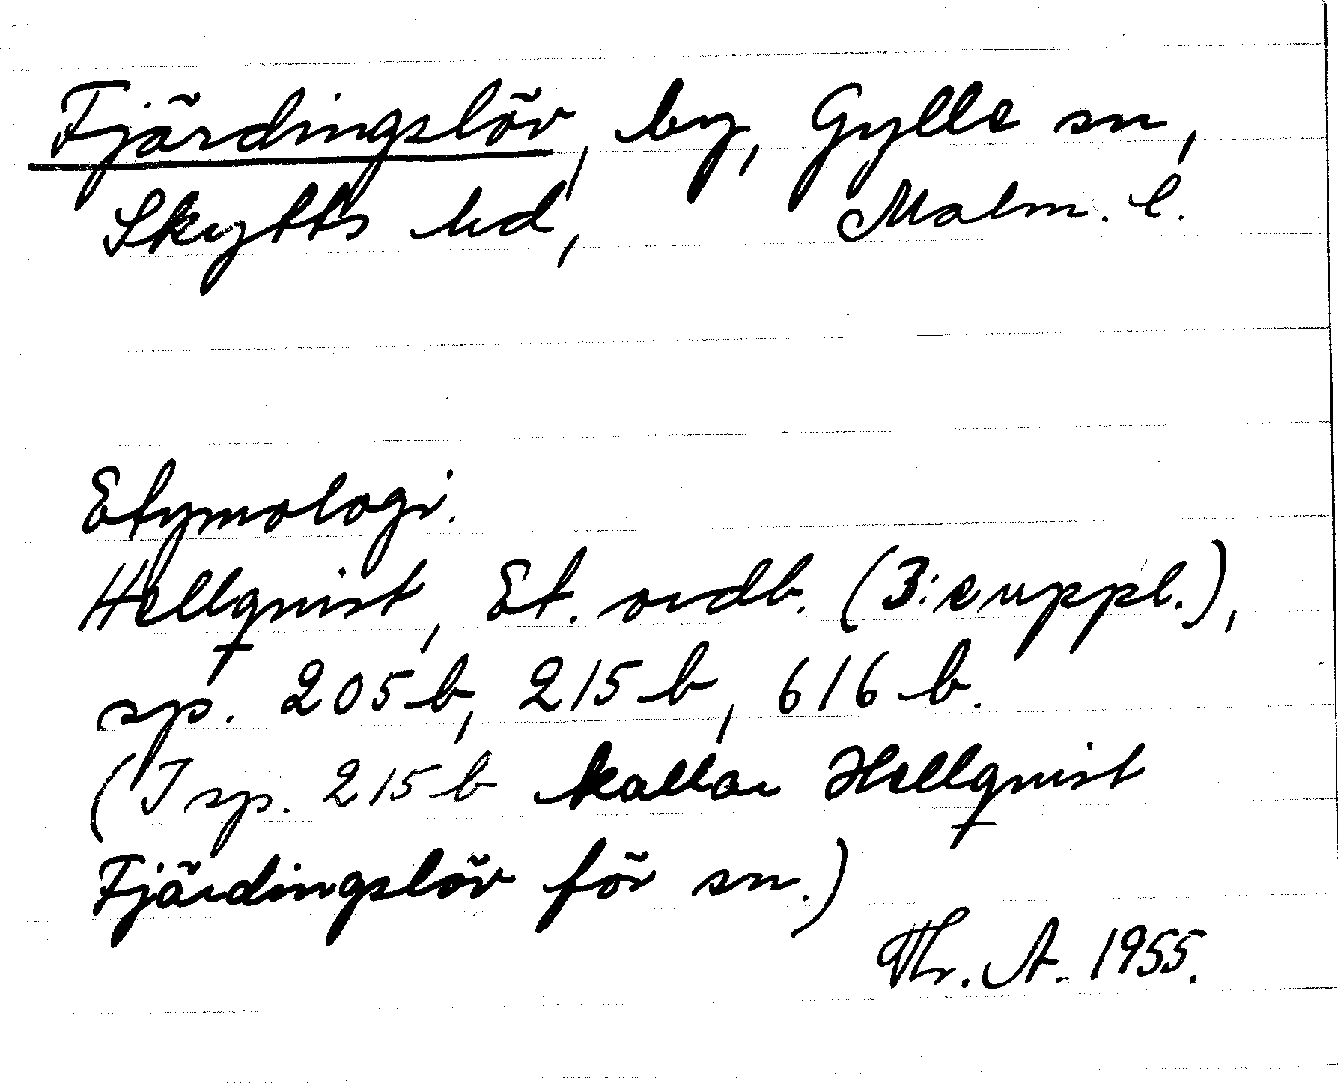 Fjärdingslöv, by, Gylle sn,
Skytts hd, Malm. l.
Etymologi.
Hellquist, Et. ordb. (3:e uppl.),
sp. 205 b, 215 b, 616 b.
(I sp. 215 b kallar Hellquist
Fjärdingslöv för sn.)
Thr. A. 1955.